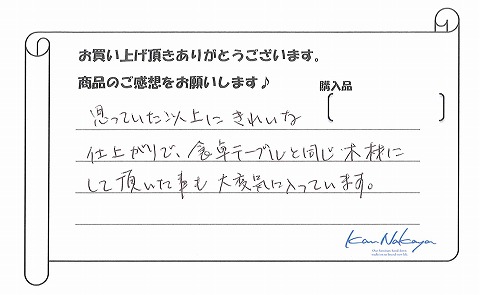 お買い上げ頂きありがとうございます。
商品のご感想をお願いします♪
購入品
思っていた以上にきれいな
仕上がりで、食卓テーブルと同じ木材に
して頂いた事も大変気に入っています。
Kan Nakaya